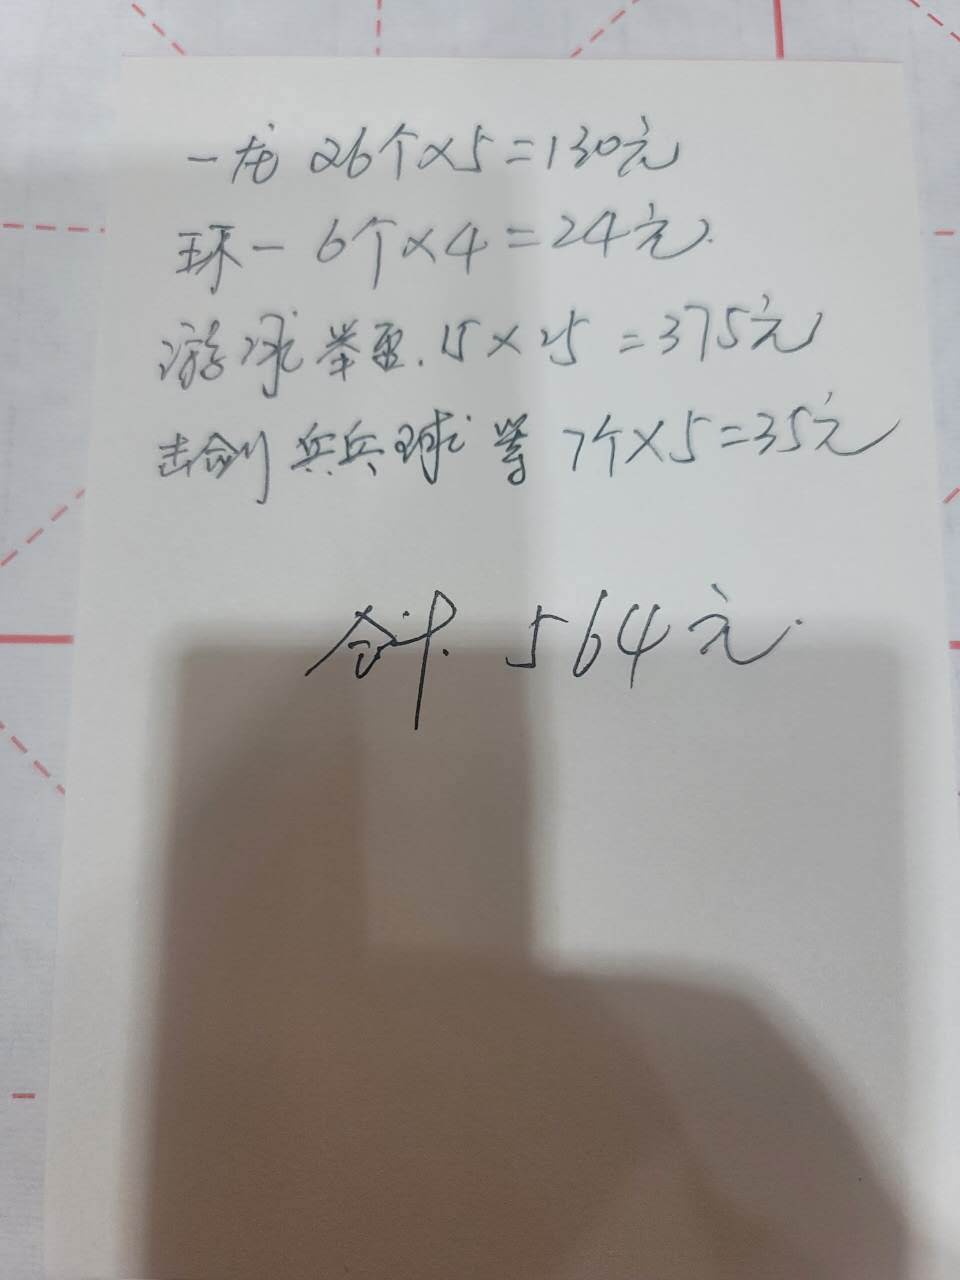 一龙 26个×5=130元
环一 6个×4=24元.
游泳 举重. 15×25=375元
击剑 乒乓球 等 7个×5=35元
合计. 564元.